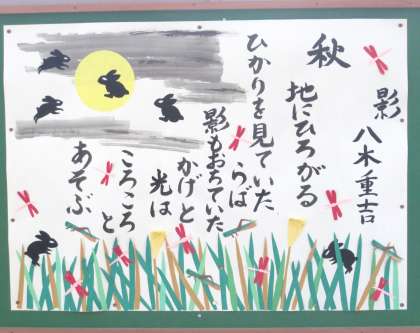 影 八木重吉
秋
地にひろがる
ひかりを見ていた
らば
影もおちていた
かげと
光は
ころころ と
あそぶ